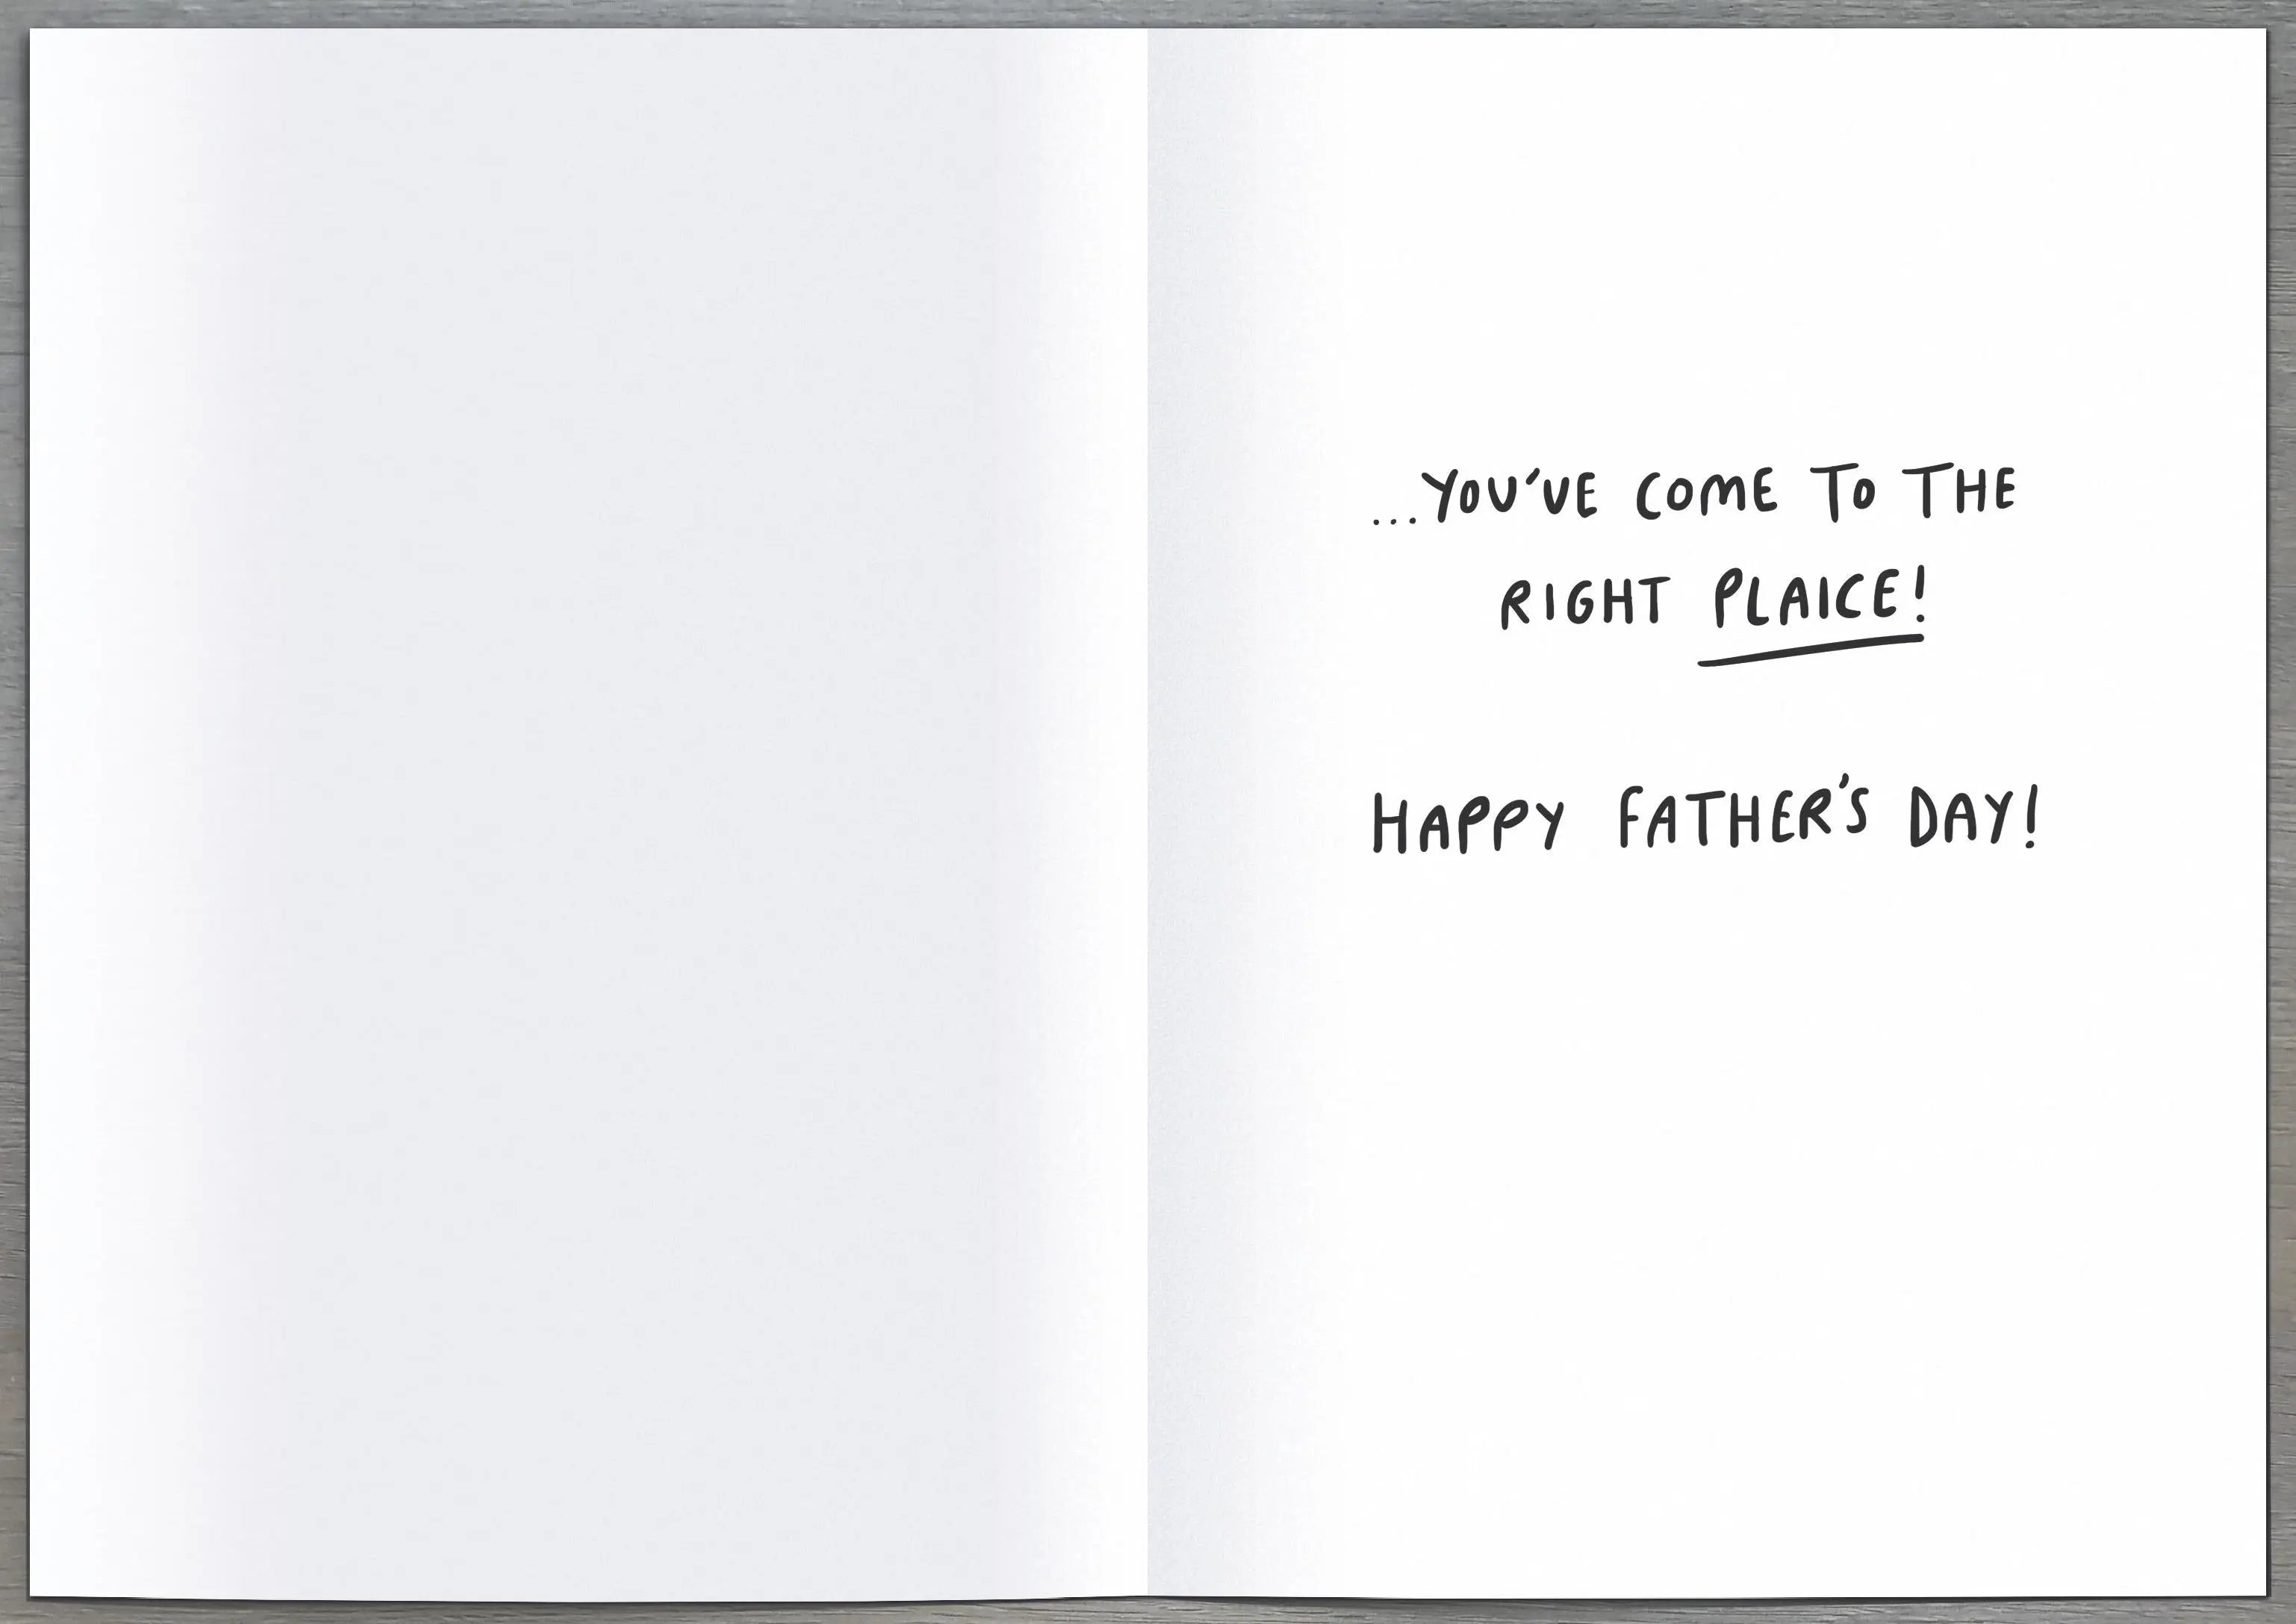 ...YOU'VE COME TO THE
RIGHT PLAICE!
HAPPY FATHER'S DAY!